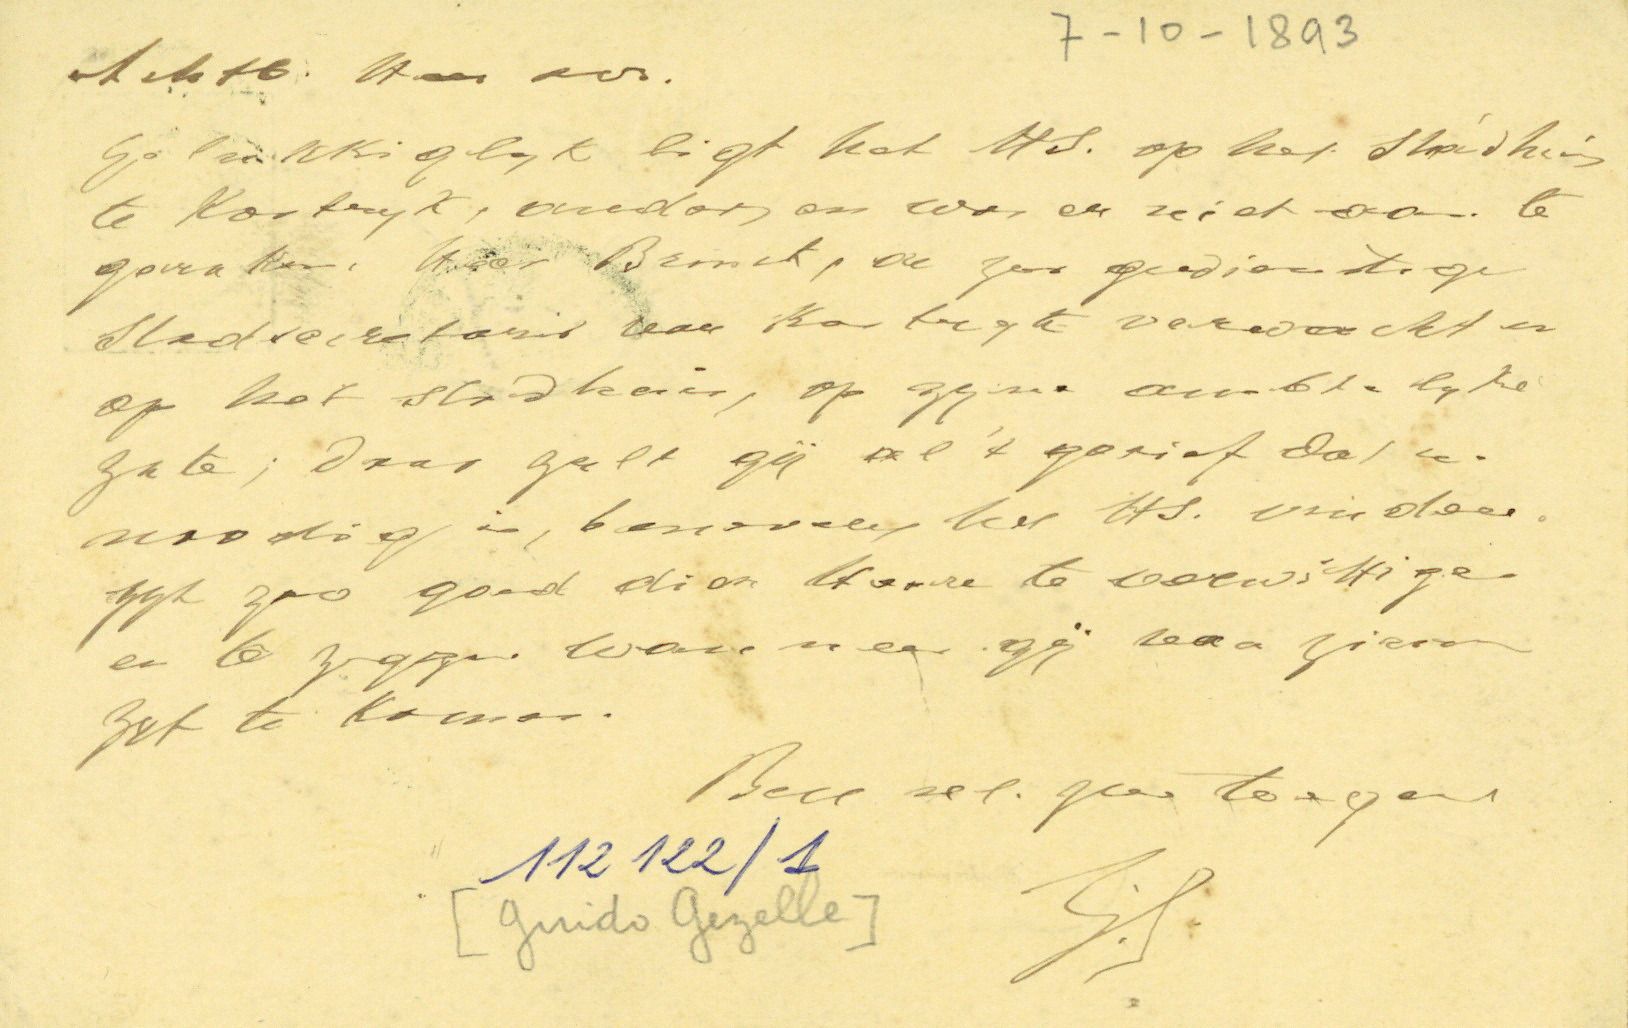 7-10-1893
Achtb. Heer
Gelukkiglyk ligt het HS. op het Stadhuis
te Kortryk, anders en was er niet aan te
geraken. Heer de zeer gedienstige
Stadsecretaris van Kortryk verwacht u
op het stadhuis, op zyne ambtelyke
zate; daar zult gij al 't gerief dat u
noodig is, benevens het HS. vinden.
zyt zoo goed dien Heere te verwittigen
en te zeggen wanneer gij van zinne
zyt te komen.
toegen
112 122/1
[Guido Gezelle]
G.G.